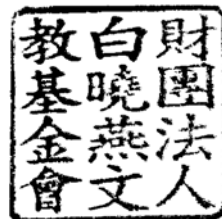 財團法人
白曉燕文
教基金會